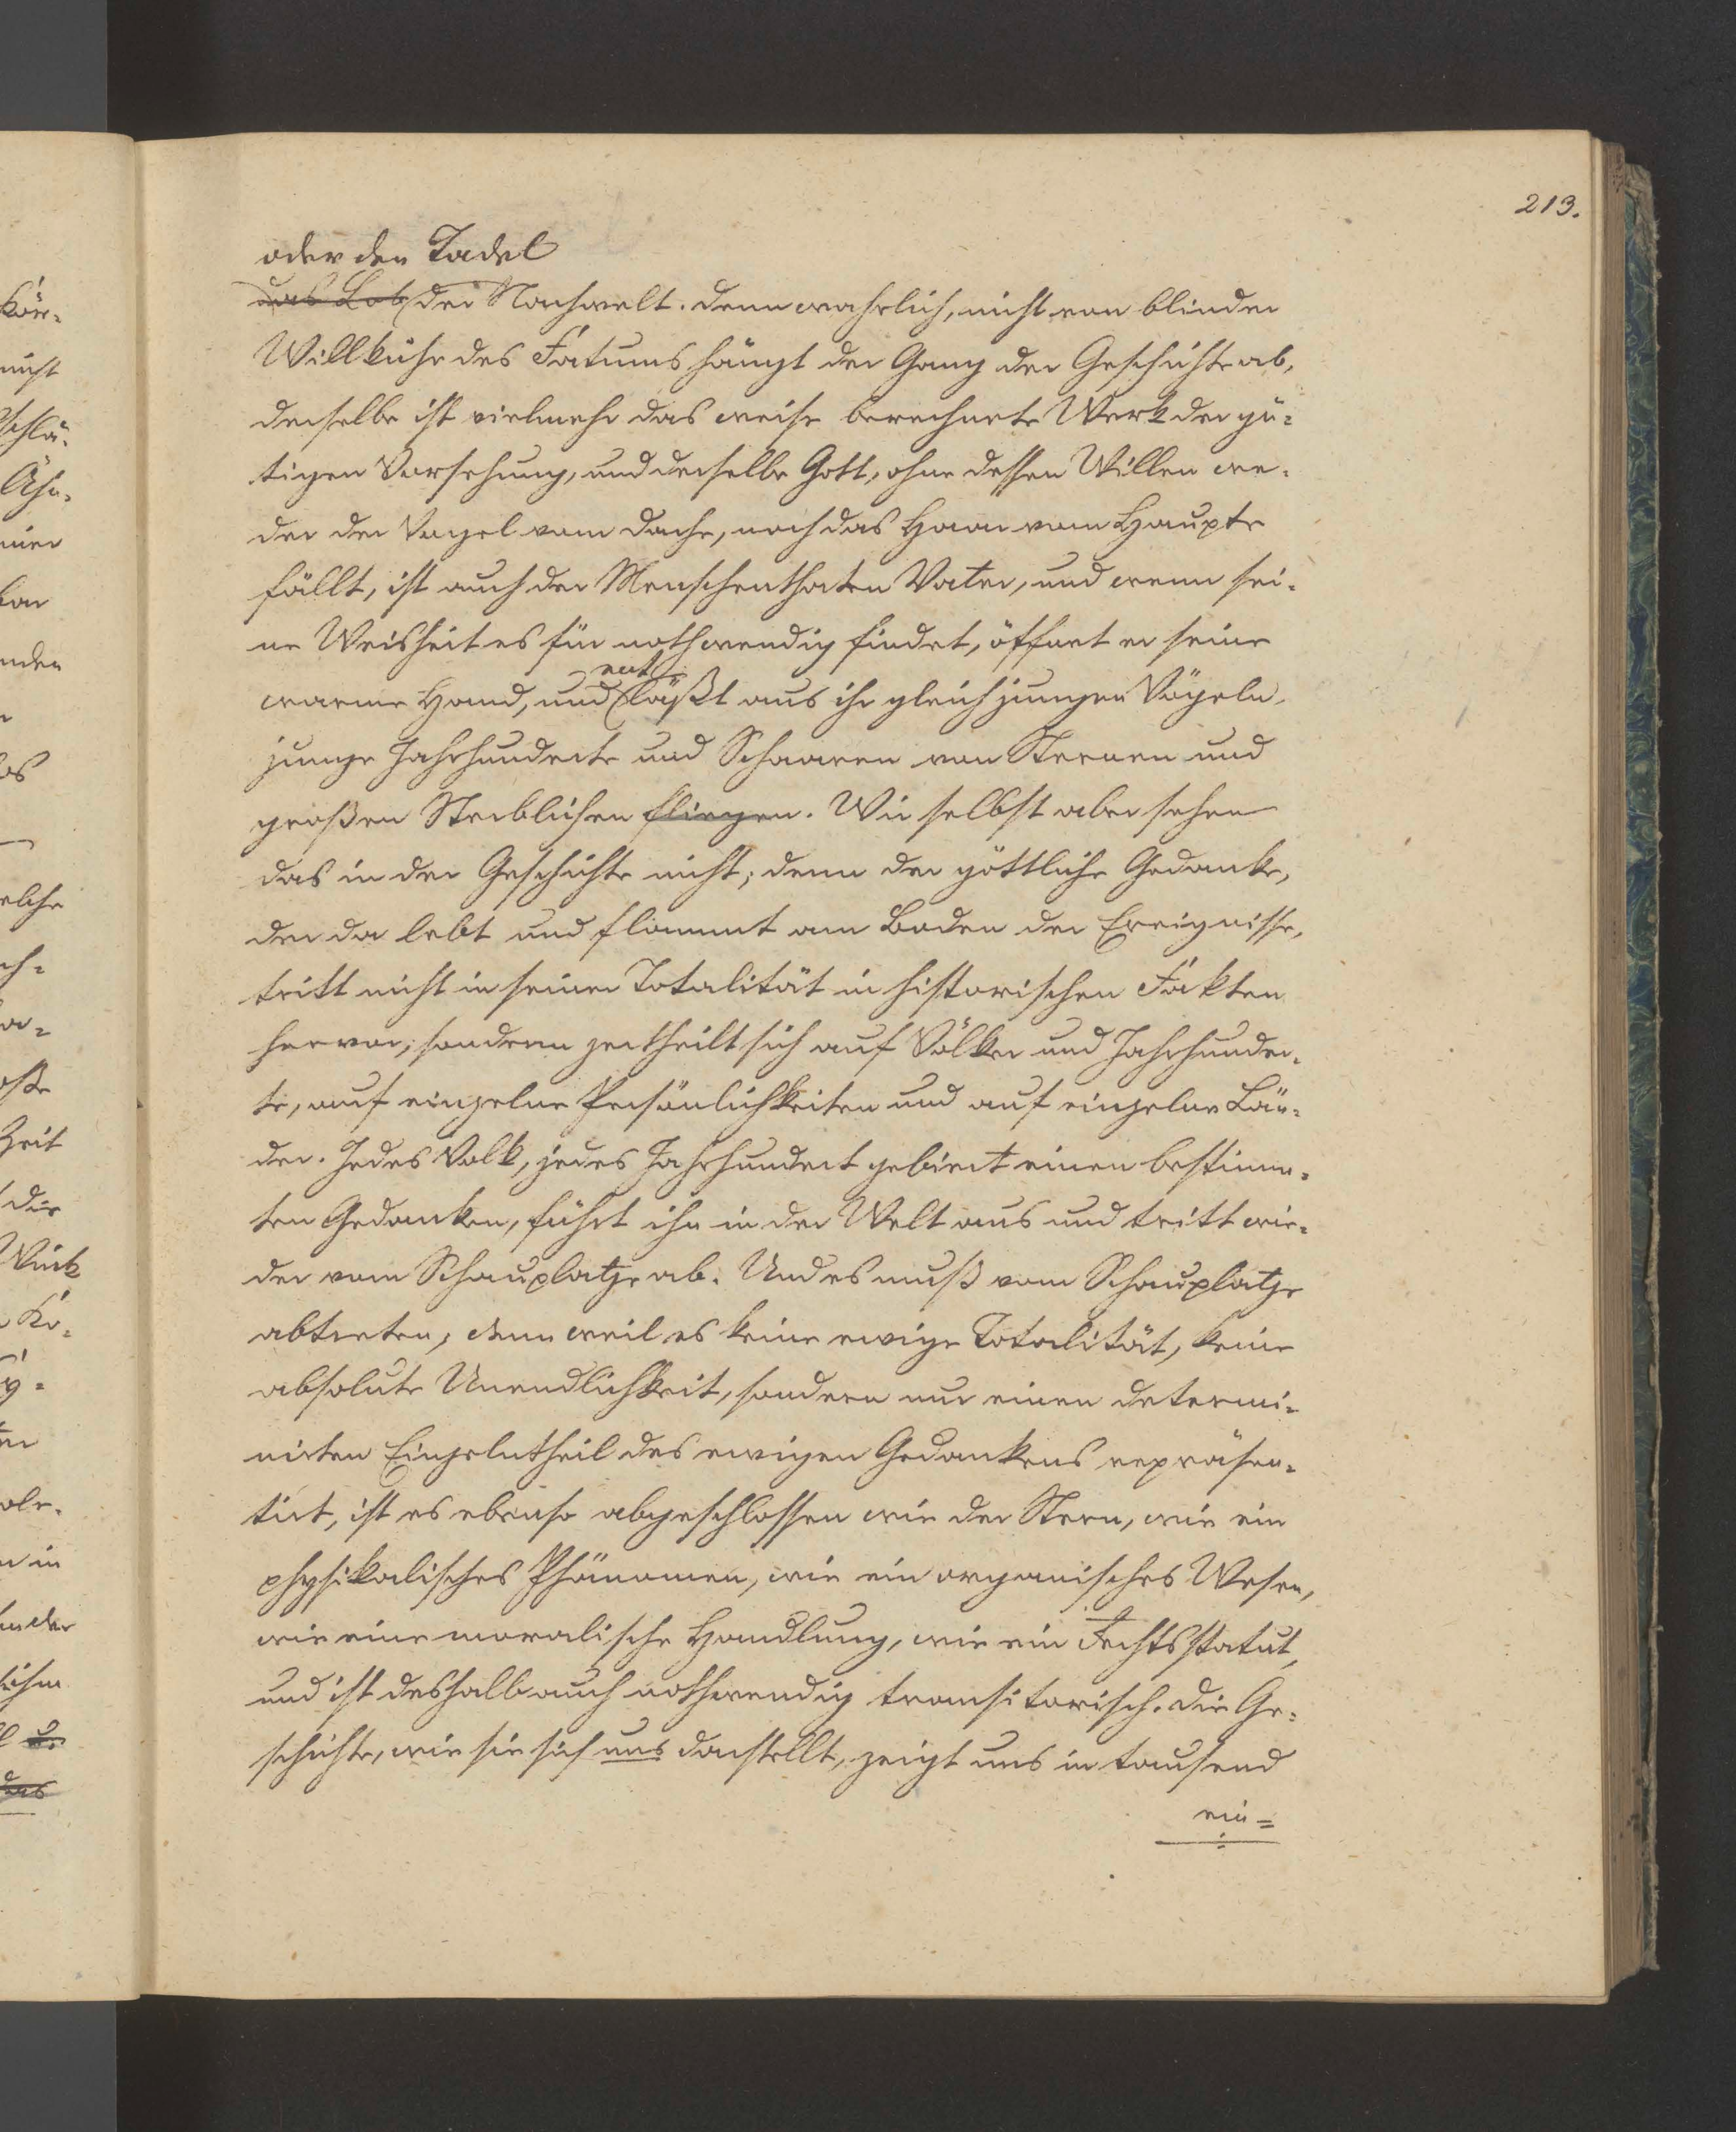 213.
oder den Tadel
das Lob der Nachwelt. Denn wahrlich, nicht von blinder
Willkühr des Fatums hängt der Gang der Geschichte ab,
derselbe ist vielmehr das weise berechnete Werk der gü-
tigen Vorsehung, und derselbe Gott, ohne dessen Willen we-
der der Vogel vom Dache, noch das Haar vom Haupte
fällt, ist auch der Menschenthaten Vater, und wenn sei-
ne Weisheit es für nothwendig findet, öffnet er seine
ent
warme Hand, und läßt aus ihr gleich jungen Vögeln,
junge Jahrhunderte und Schaaren von Sternen und
großen Sterblichen fliegen. Wir selbst aber sehen
das in der Geschichte nicht; denn der göttliche Gedanke,
der da lebt und flammt am Boden der Ereignisse,
tritt nicht in seiner Totalität in historischen Fakten
hervor, sondern zertheilt sich auf Völker und Jahrhunder-
te, auf einzelne Persönlichkeiten und auf einzelne Län-
der. Jedes Volk, jedes Jahrhundert gebiert einen bestimm-
ten Gedanken, führt ihn in der Welt aus und tritt wie-
der vom Schauplatze ab. Und es muß vom Schauplatze
abtreten, denn weil es keine ewige Totalität, keine
absolute Unendlichkeit, sondern nur einen determi-
nirten Einzelntheil des ewigen Gedankens repräsen-
tirt, ist es ebenso abgeschlossen wie der Stern, wie ein
physikalisches Phänomen, wie ein organisches Wesen,
wie eine moralische Handlung, wie ein Rechtsstatut,
und ist deshalb auch nothwendig transitorisch. Die Ge-
schichte, wie sie sich uns darstellt, zeigt uns in tausend
ein-